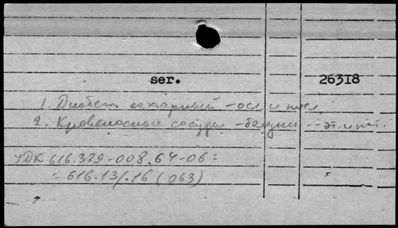 ser. 26318
1. Диабет сахарный - осл. и
2. Кровеносные сосуды -
УДК 616.379-008.64-06:
: 616.13/.16 (063)